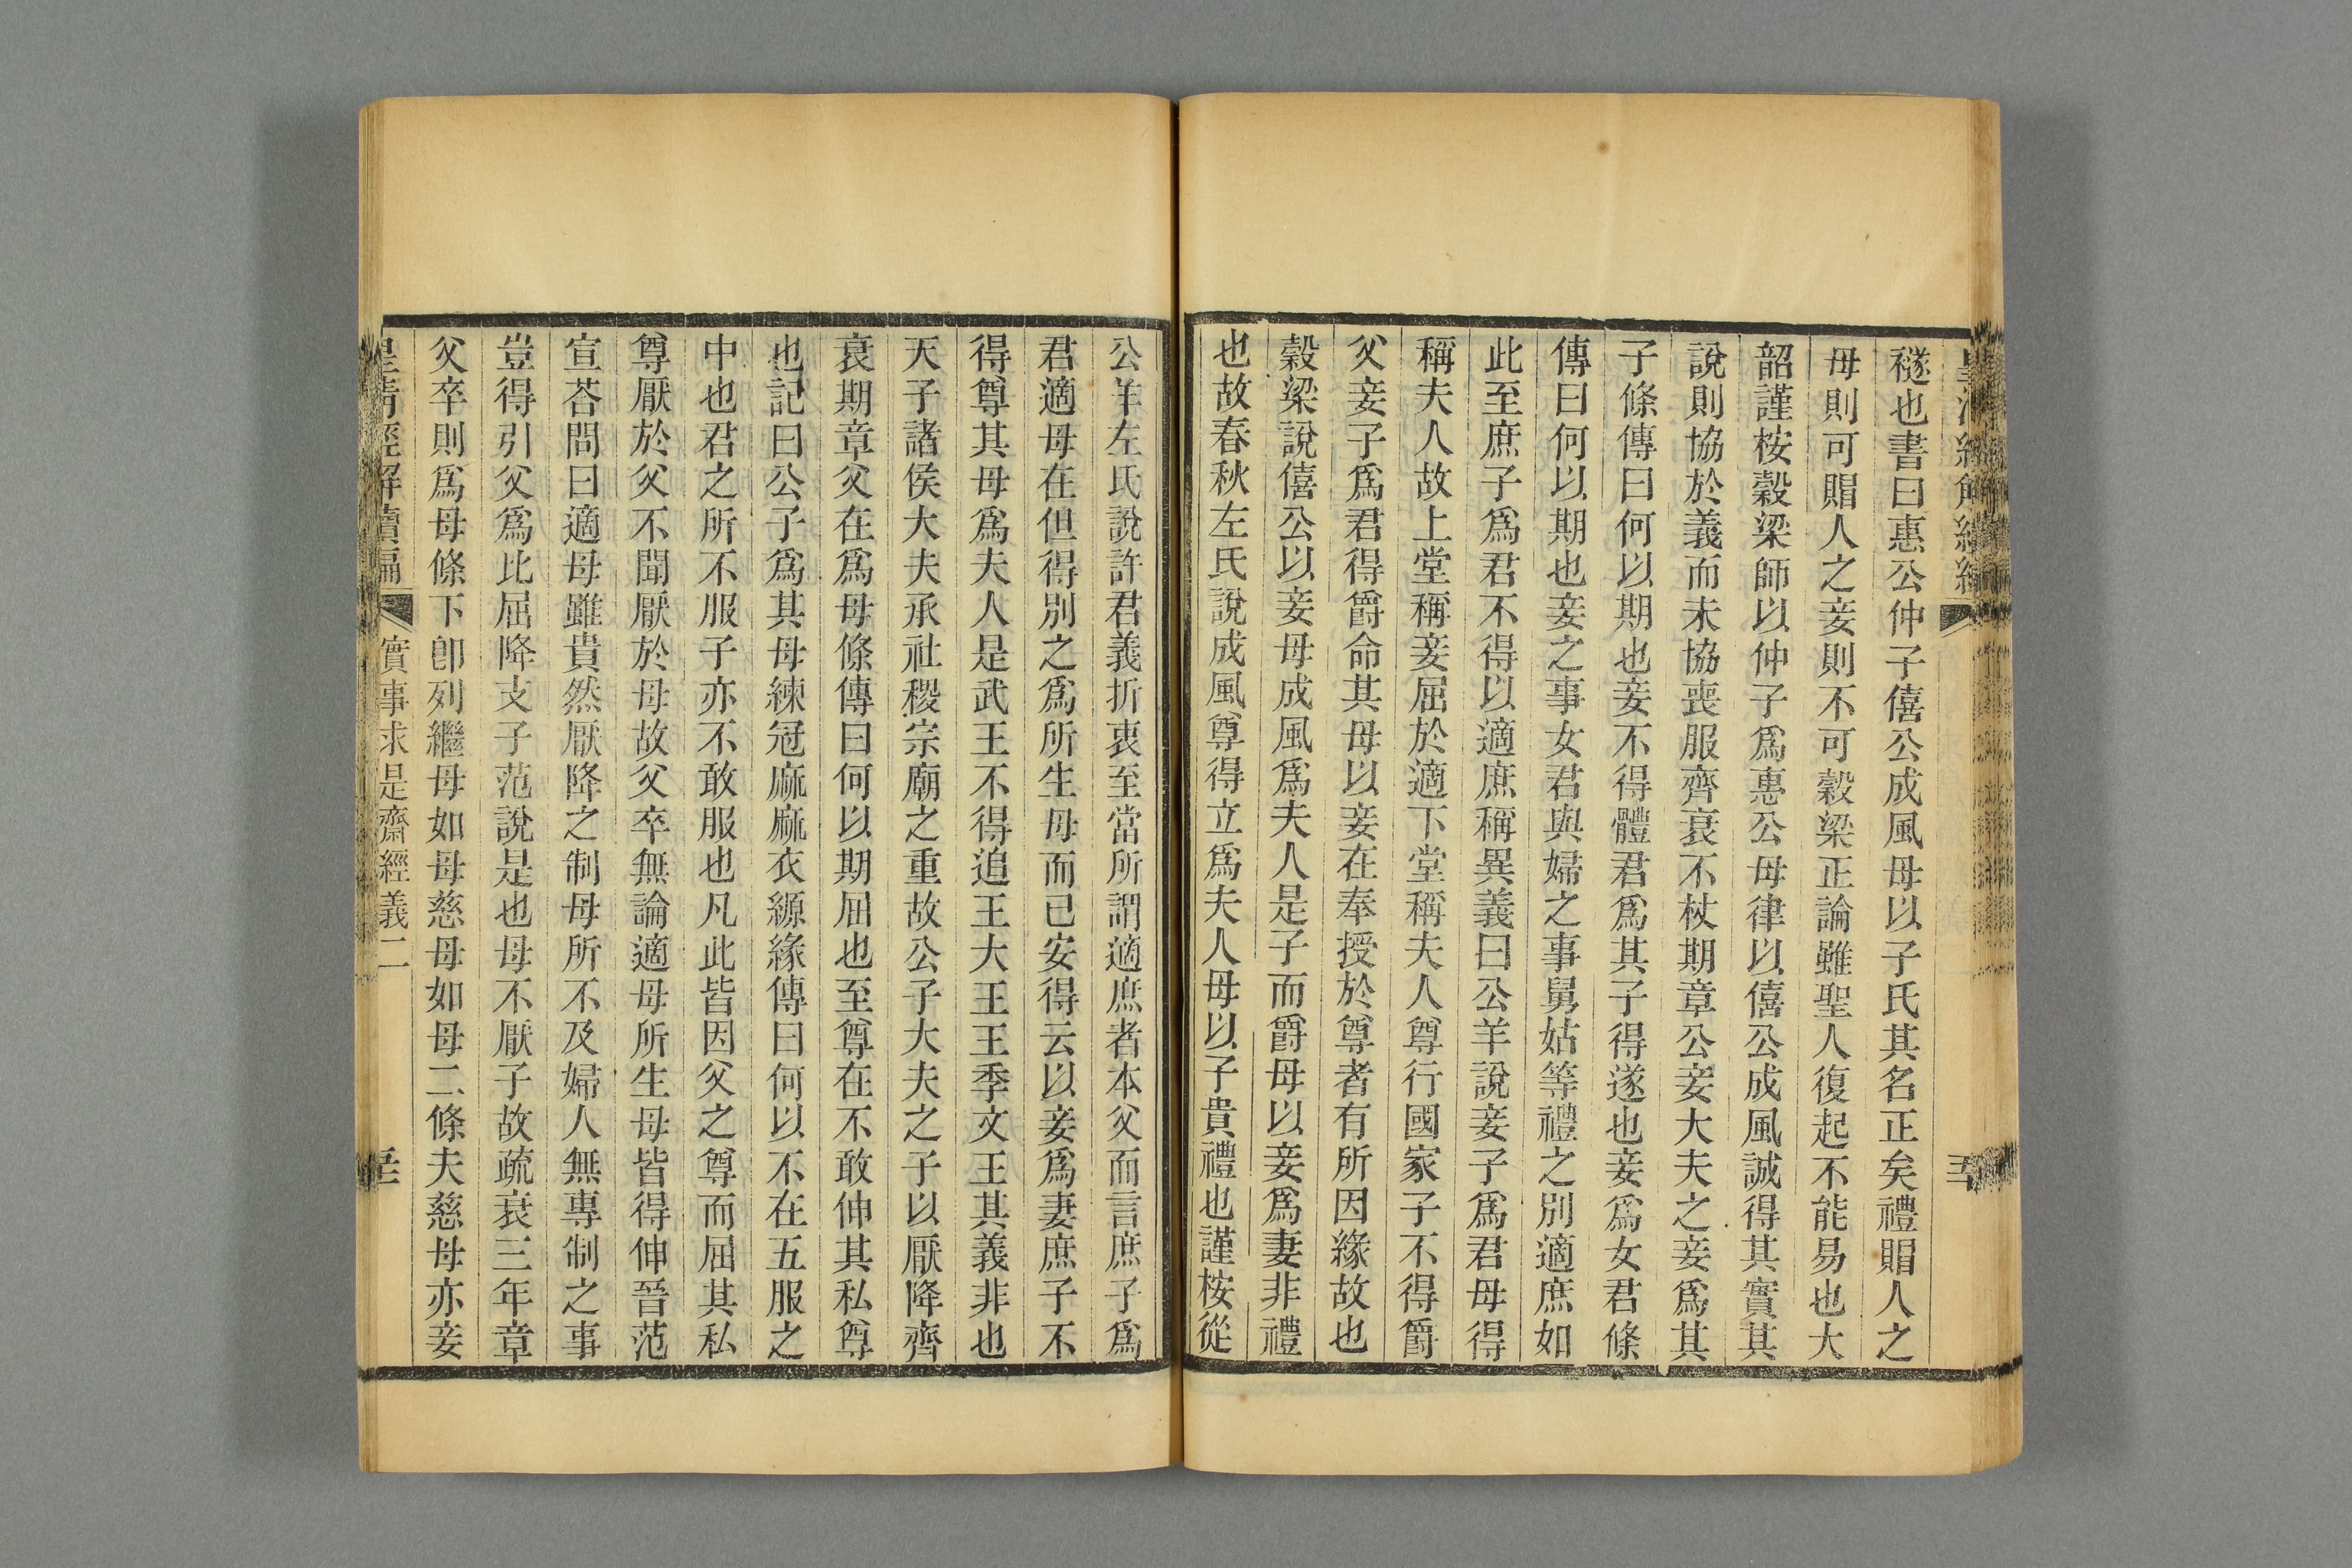 襚也書曰惠公仲子僖公成風母以子氏其名正矣禮賵人之
母則可賵人之妾則不可穀梁正論雖聖人復起不能易也大
韶謹桉穀梁師以仲子爲惠公母律以僖公成風誠得其實其
說則協於義而未協喪服齊衰不杖期章公妾大夫之妾爲其
子條傳曰何以期也妾不得體君爲其子得遂也妾爲女君條
傳曰何以期也妾之事女君與婦之事舅姑等禮之別適庶如
此至庶子爲君不得以適庶稱異義曰公羊說妾子爲君母得
稱夫人故上堂稱妾屈於適下堂稱夫人尊行國家子不得爵
父妾子爲君得爵命其母以妾在奉授於尊者有所因緣故也
穀梁說僖公以妾母成風爲夫人是子而爵母以妾爲妻非禮
也故春秋左氏說成風尊得立爲夫人母以子貴禮也謹桉從
公羊左氏說許君義折衷至當所謂適庶者本父而言庶子爲
君適母在但得別之爲所生母而已安得云以妾爲妻庶子不
得尊其母爲夫人是武王不得追王大王王季文王其義非也
天子諸侯大夫承社稷宗廟之重故公子大夫之子以厭降齊
衰期章父在爲母條傳曰何以期屈也至尊在不敢伸其私尊
也記曰公子爲其母練冠麻麻衣縓緣傳曰何以不在五服之
中也君之所不服子亦不敢服也凡此皆因父之尊而屈其私
尊厭於父不聞厭於母故父卒無論適母所生母皆得伸晉范
宣荅問曰適母雖貴然厭降之制母所不及婦人無專制之事
豈得引父爲比屈降支子范說是也母不厭子故疏衰三年章
父卒則爲母條下卽列繼母如母慈母如母二條夫慈母亦妾
皇清經解續編 實事求是齋經義二